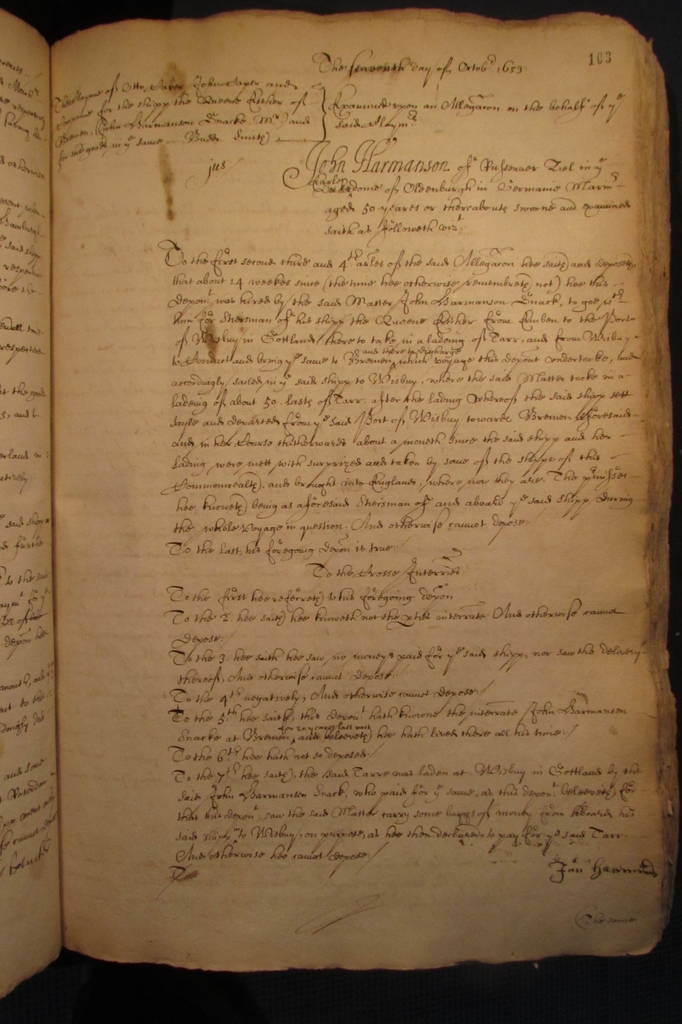 103
The seaventh day of Octob.r 1653.
The clayme of Otto Japer John Japer and
Companie for the shipp the Queene Esther of
Bremen (John Harmanson Snacke M.r) and
for the goods in y.e same
Examined upon an Allegaċon on the behalfe of y.e
said Claym.rs
jus
John Harmanson of Ziel in y.e
Earledome of Oldenburgh in Germanie Marin.r
aged 50 yeares or thereabouts sworne and examined
saith as followeth viz.t
To the first second third and 4.th ar.les of the said Allegaċon hee saith and deposeth
that about 14 weekes since (the time hee otherwise remembreth not) hee this
depon.t was hired by the said Master John Harmanson Snack, to goe
him for Steersman of his shipp the Queene Esther from Emden to the Porte
of Wisbuy in Gottland there to take in a lading of Tarr, and from Wisbuy
to conduct and bring y.e same to Bremen and there to discharge which voyage this depon.t undertooke, and
accordingly sailed in y.e said shipp to Wisbuy, where the said Master tooke in a
lading of about 50 lasts of Tarr, after the lading whereof the said shipp sett
sayle and departed from y.e said Port of Wisbuy towards Bremen aforesaid
And in her course thitherwards about a moneth since the said shipp and her
lading were mett with surprized and taken by some of the shipps of this
Commonwealth, and brought into England, where now they are. The premisses
hee knoweth being as aforesaid Steersman of and aboard y.e said shipp during
the whole voyage in question. And otherwise cannot depose.
To the last, his foregoing depoċon is true
To the Crosse Interries
To the first hee referreth to his foregoing depoċon
To the 2. hee saith hee knoweth not the interrate And otherwise cannot
depose.
To the 3. hee saith hee saw no moneys paid for y.e said shipp, nor saw the delivery
thereof, And otherwise cannot depose.
To the 4.th negatively, And otherwise cannot depose.
To the 5.th hee saith, this depon.t hath knowne the interrate John Harmansen
Snacke at Bremen and beleeveth hee hath lived there all his time.
To the 6.th hee hath not so deposed
To the 7.th hee saith, the said Tarre was laden at Wisbuy in Gottland by the
said John Harmansen Snack, who paid for y.e same, as this depon.t beleeveth, for
that hee this depon.t saw the said Master carry some baggs of money from aboard his
said shipp to Wisbuy, on purpose, as hee then declared to pay for y.e said Tarr
And otherwise hee cannot depose.
Jan Harmens
The same